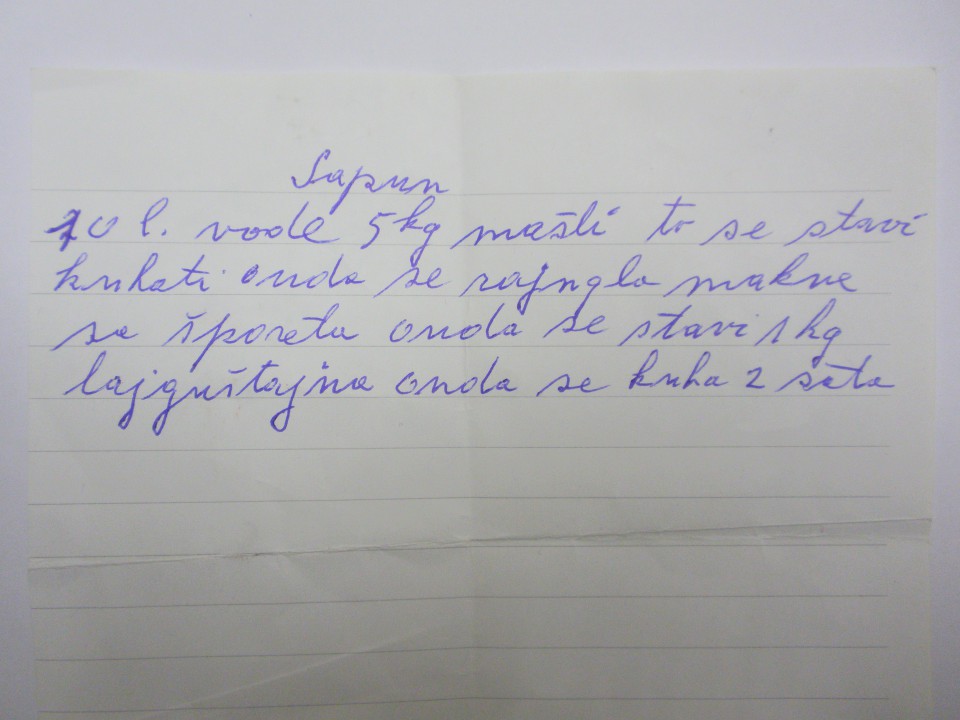 Sapun
10 l. vode 5 kg mašti to se stavi
kuhati onda se rajngla makne
sa šporeta onda se stavi 1 kg
lajguštajna onda se kuha 2 sata